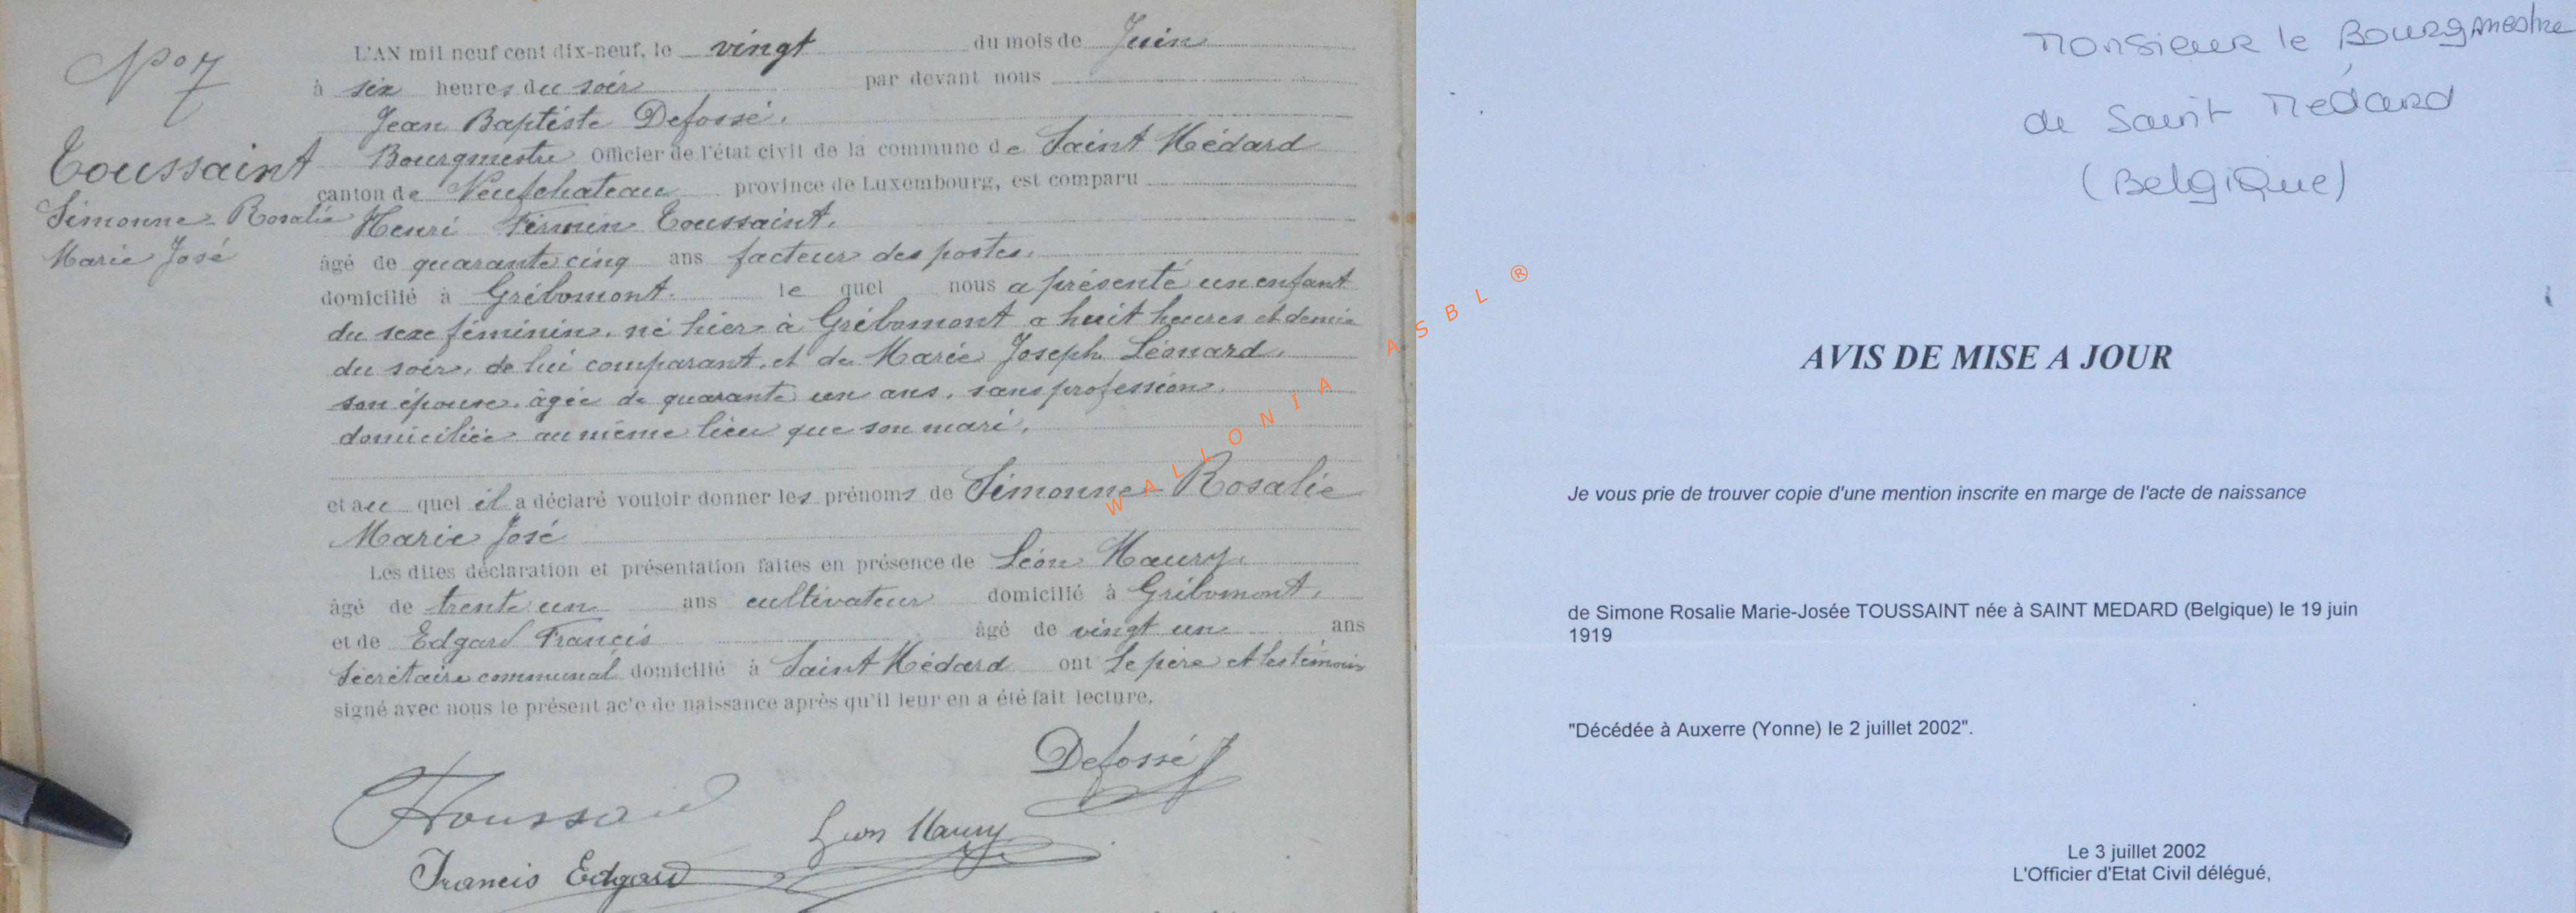 N° 7
Toussaint
Simonne-Rosalie
Marie José
L'AN mil neuf cent dix-neuf, le vingt du mois de Juin
à six heures du soir par devant nous
Jean Baptiste Defossé,
Bourgmestre Officier de l'état civil de la commune de Saint Médard
canton de Neufchateau province de Luxembourg, est comparu
Henri Firmin Toussaint,
âgé de quarante cinq ans facteur des postes,
domicilié à Gribomont. le quel nous a présenté un enfant
du sexe féminin, né hier à Gribomont a huit heures et demie
du soir, de lui comparant, et de Marie Joseph Léonard,
son épouse, âgée de quarante un ans, sans profession,
domiciliée au même lieu que son mari,
et au quel il a déclaré vouloir donner les prénoms de Simonne-Rosalie
Marie José
Les dites déclaration et présentation faites en présence de Léon Maury,
âgé de trente un ans cultivateur domicilié à Gribomont,
et de Edgard Francis âgé de vingt un ans
Secrétaire communal domicilié à Saint Médard ont le père et les témoins
signé avec nous le présent acte de naissance après qu'il leur en a été fait lecture.
Defossé
Toussaint
Leon Maury
Francis Edgard
WALLONIA ASBL ®
Monsieur le Bourgmestre
de Saint Médard
(Belgique)
AVIS DE MISE A JOUR
Je vous prie de trouver copie d'une mention inscrite en marge de l'acte de naissance
de Simone Rosalie Marie-Josée TOUSSAINT née à SAINT MEDARD (Belgique) le 19 juin
1919
"Décédée à Auxerre (Yonne) le 2 juillet 2002".
Le 3 juillet 2002
L'Officier d'Etat Civil délégué,